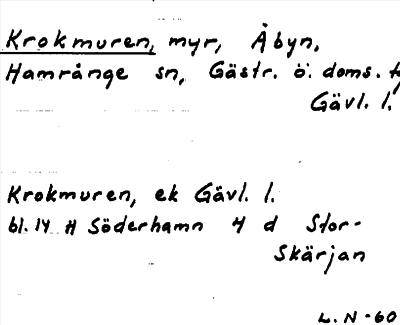 Krokmuren, myr, Åbyn,
Hamrånge sn, Gästr. ö. doms.
Gävl. l.
Krokmuren, ek Gävl. l.
bl. 14 H Söderhamn 4 d Stor-
Skärjan
L. N -60